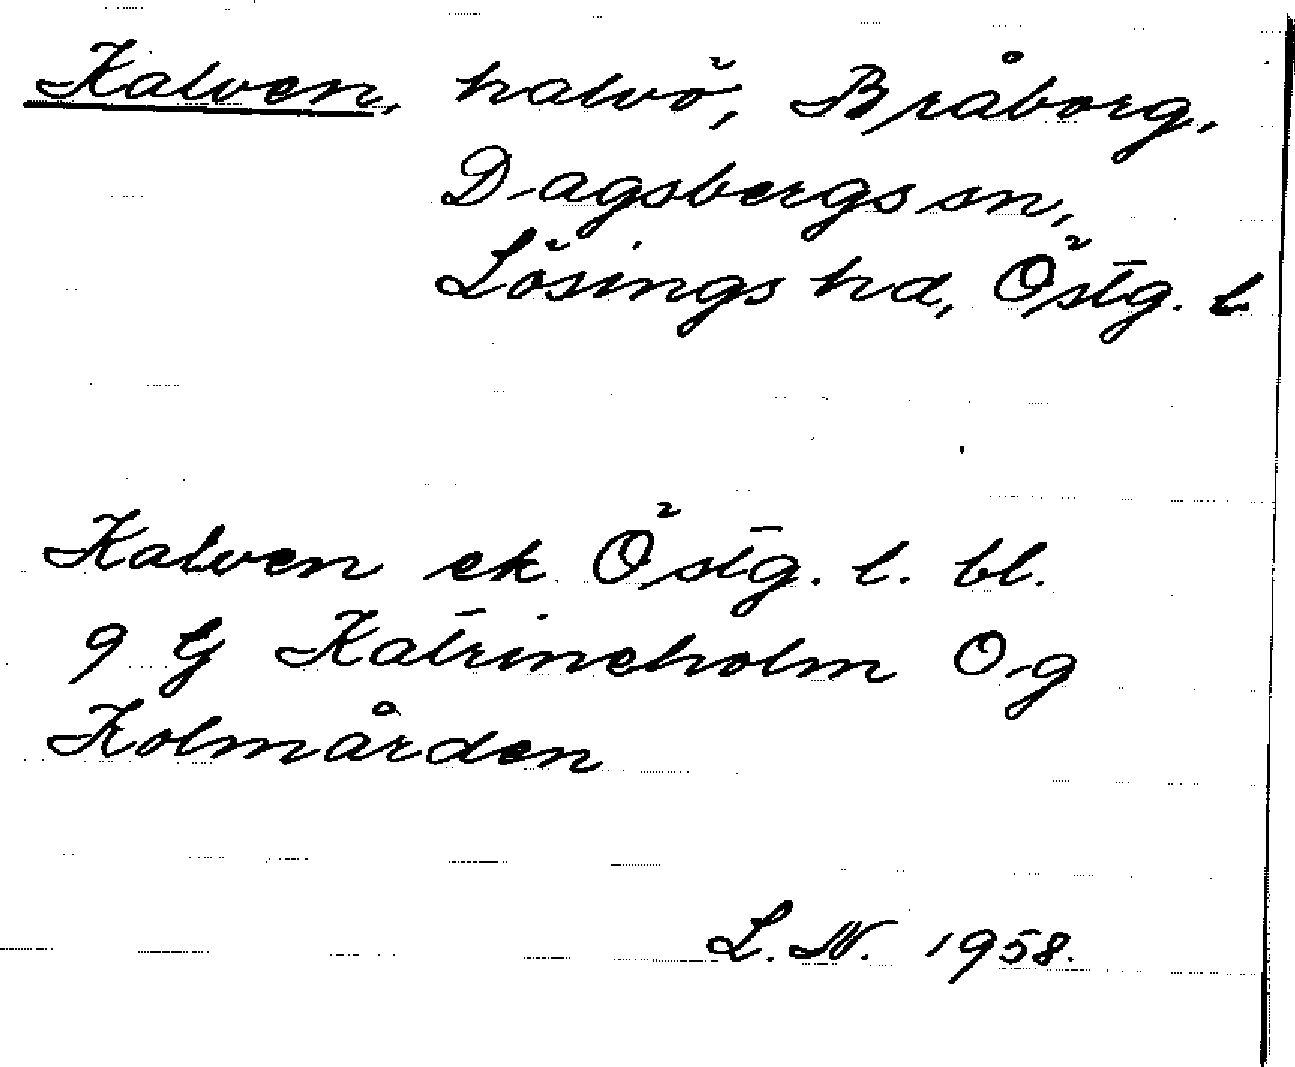 Kalven, halvö, Bråborg,
Dagsbergs sn,
Lösings hd, Östg. l
Kalven ek Östg. l. bl.
9 G Katrineholm Og
Kolmården
L. N. 1958.